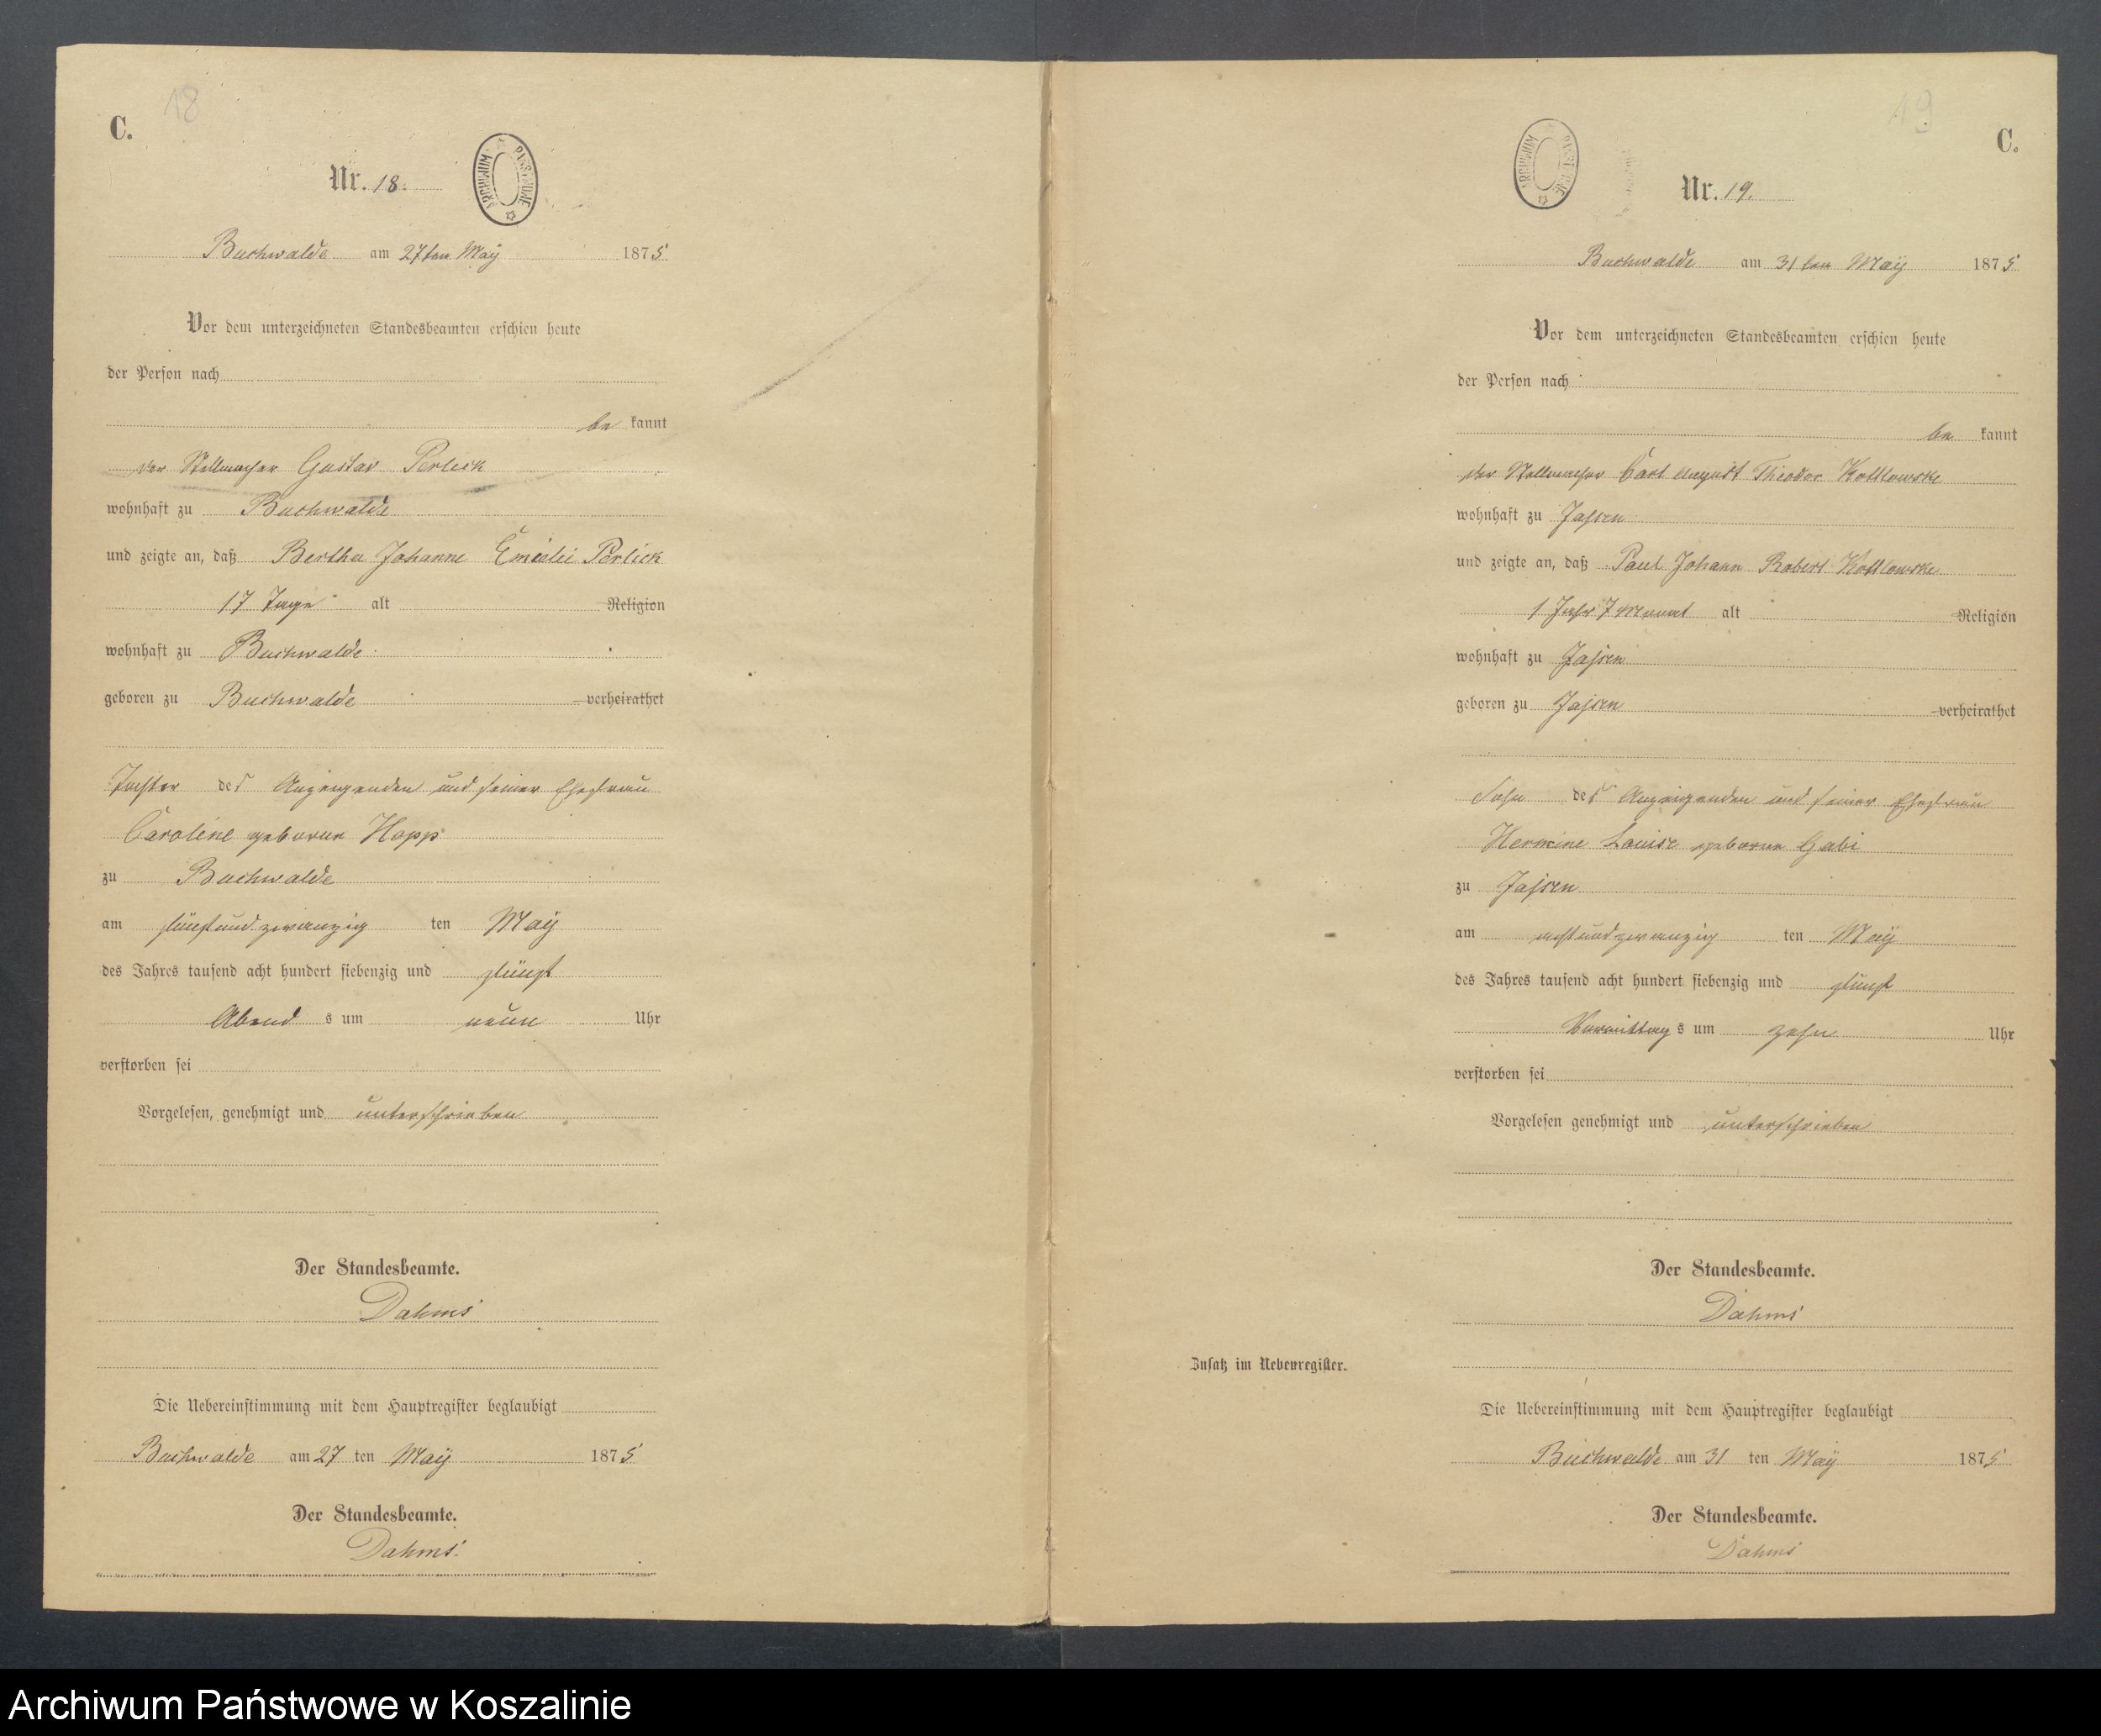 18
C.
Nr. 18.
ARCHIWUM PAŃSTWOWE
Buchwalde am 27ten Maÿ 1875
Vor dem unterzeichneten Standesbeamten erschien heute
der Person nach
be kannt
der Stellmacher Gustav Perlick
wohnhaft zu Buchwalde
und zeigte an, daß Bertha Johanne Emielie Perlick
17 Tage alt Religion
wohnhaft zu Buchwalde
geboren zu Buchwalde verheirathet
Tochter des Anzeigenden und seiner Ehefrau
Caroline geborne Hopp
zu Buchwalde
am fünfundzwanzig ten Maÿ
des Jahres tausend acht hundert siebenzig und fünf
Abend s um neun Uhr
verstorben sei
Vorgelesen, genehmigt und unterschrieben
Der Standesbeamte.
Dahms
Die Uebereinstimmung mit dem Hauptregister beglaubigt
Buchwalde am 27 ten Maÿ 1875
Der Standesbeamte.
Dahms.
19
C.
ARCHIWUM PAŃSTWOWE
Nr. 19.
Buchwalde am 31 ten Maÿ 1875
Vor dem unterzeichneten Standesbeamten erschien heute
der Person nach
be kannt
der Stellmacher Carl August Theodor Kottlowske
wohnhaft zu Jassen
und zeigte an, daß Paul Johann Robert Kottlowske
1 Jahr 7 Monat alt Religion
wohnhaft zu Jassen
geboren zu Jassen verheirathet
Sohn des Anzeigenden und seiner Ehefrau
Hermine Louise geborne Gabi
zu Jassen
am achtundzwanzig ten Maÿ
des Jahres tausend acht hundert siebenzig und fünf
Vormittag s um zehn Uhr
verstorben sei
Vorgelesen genehmigt und unterschrieben
Der Standesbeamte.
Dahms
Zusatz im Nebenregister.
Die Uebereinstimmung mit dem Hauptregister beglaubigt
Buchwalde am 31 ten Maÿ 1875
Der Standesbeamte.
Dahms
Archiwum Państwowe w Koszalinie